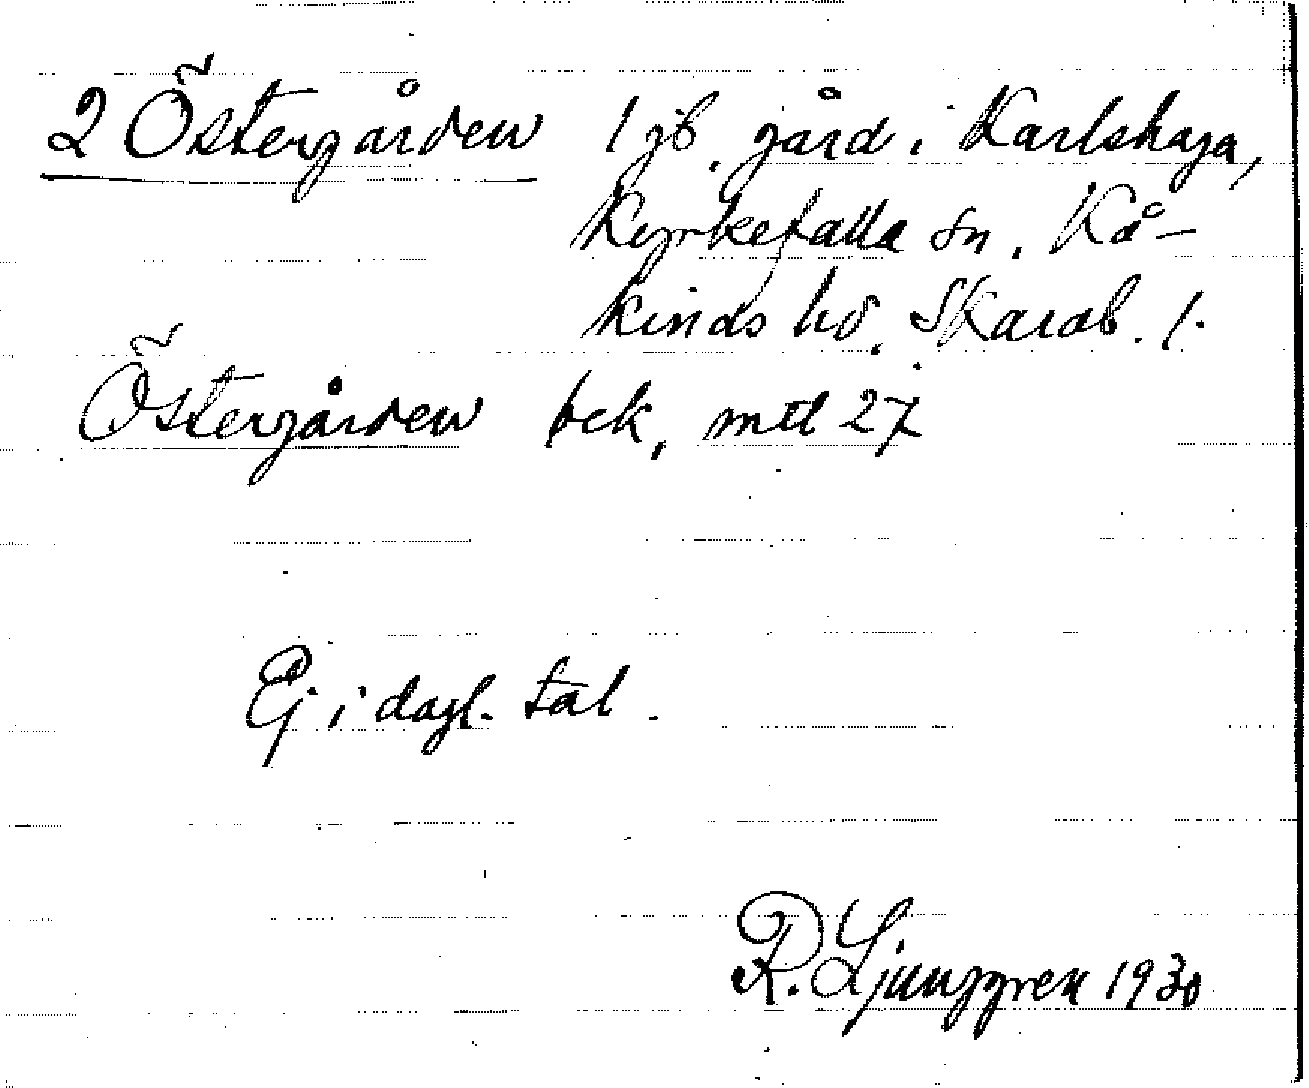 2 Östergården 1 jb. gård i Karlshaga,
Kyrkefalla sn, Kå-
kinds hd, Skarab. l.
Östergården bek, mtl 27
Ej i dagl. tal.
R. Ljunggren 1930